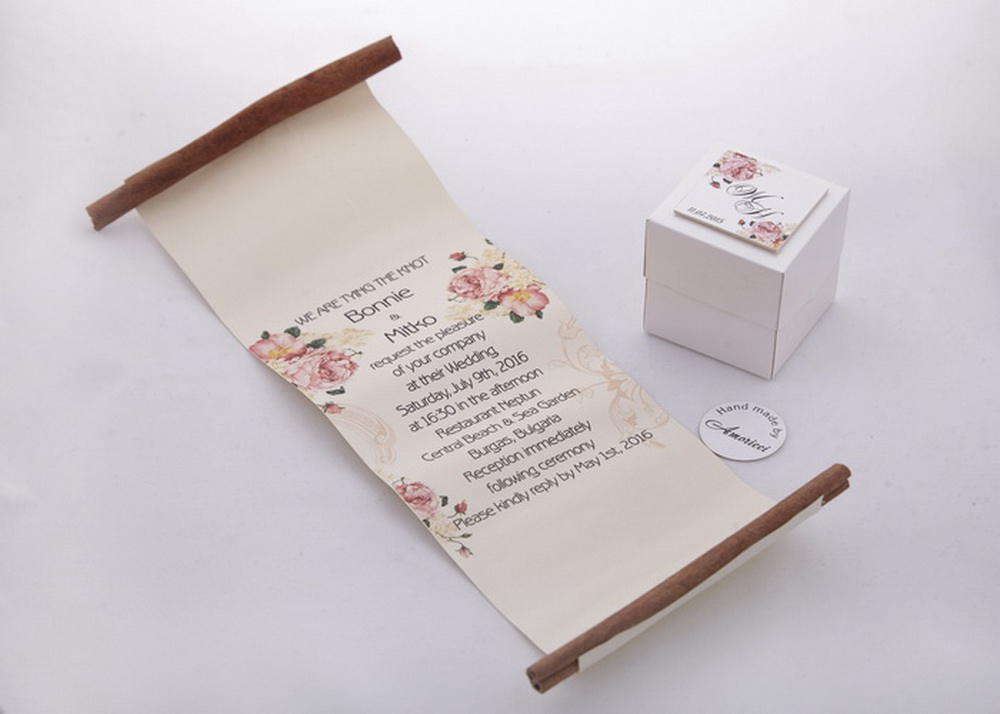 WE ARE TYING THE KNOT
Bonnie
&
Mitko
request the pleasure
of your company
at their Wedding
Saturday, July 9th, 2016
at 16:30 in the afternoon
Restaurant Neptun
Central Beach & Sea Garden
Burgas, Bulgaria
Reception immediately
following ceremony
Please kindly reply by May 1st, 2016
11.07.2015
Hand made by
Amoricci